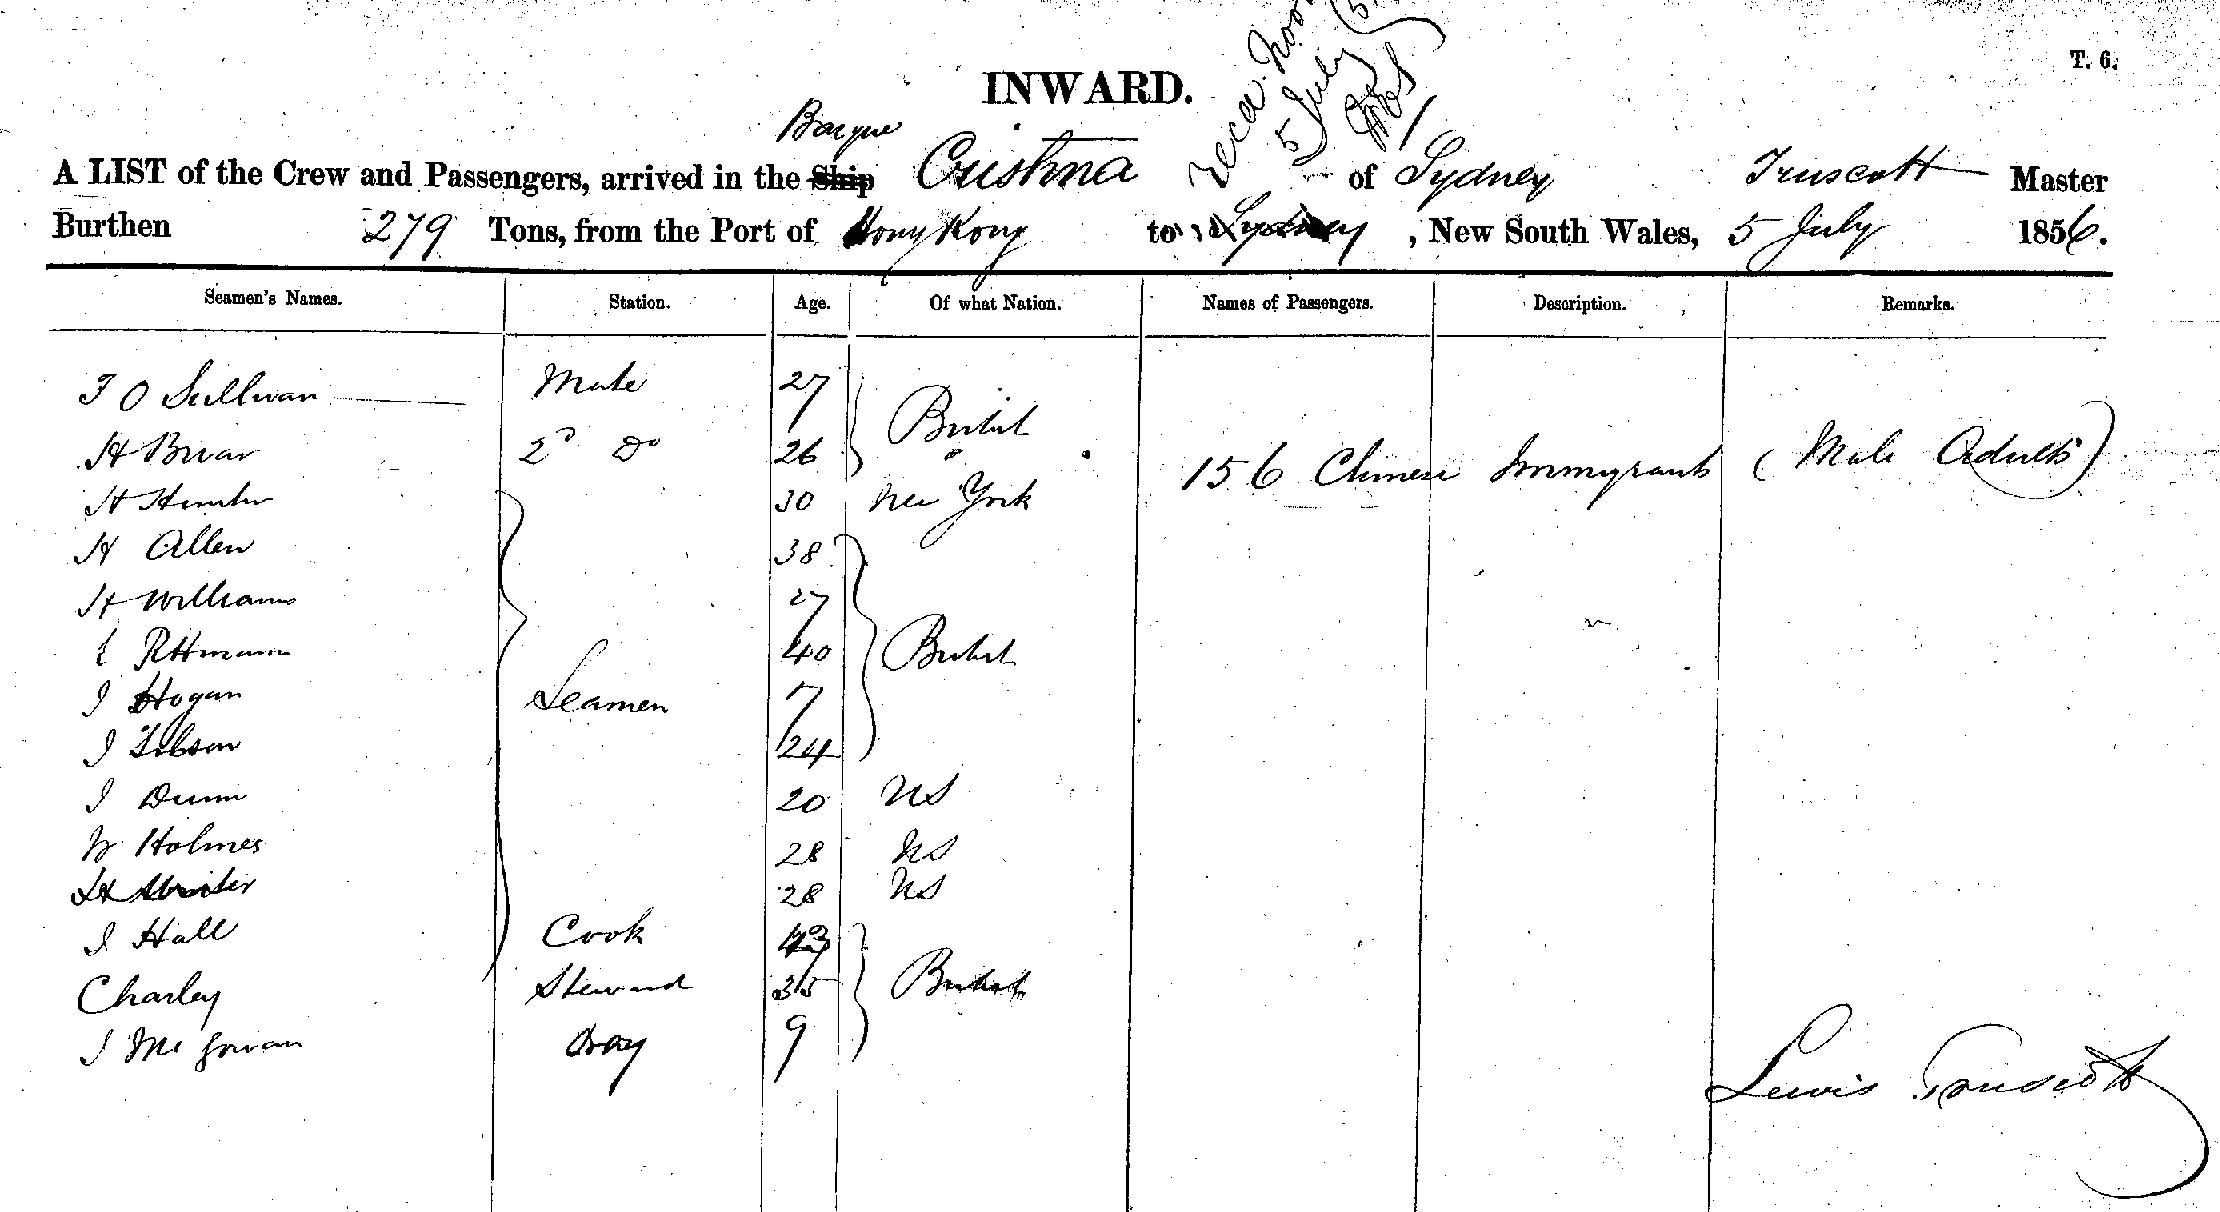 T. 6.
INWARD.
Recd. Noon
5 July
Barque
A LIST of the Crew and Passengers, arrived in the Ship Cristina of Sydney Truscott Master
Burthen 279 Tons, from the Port of Hong Kong to Sydney, New South Wales, 5 July 1856.
Seamen's Names. Station. Age. Of what Nation. Names of Passengers. Description. Remarks.
J O Sullivan Mate 27 British
H Briar 2d Do 26 "
156 Chinese Immigrants (Male Adults)
H Hunter 30 New York
H Allen 38
H Williams 27
Pittmann 40 British
J Hogan Seamen 7
J Gibson 24
J Dunn 20 US
W Holmes 28 US
28 US
J Hall Cook 43
Charley Steward 35 British
J McGowan Boy 9
Lewis Truscott